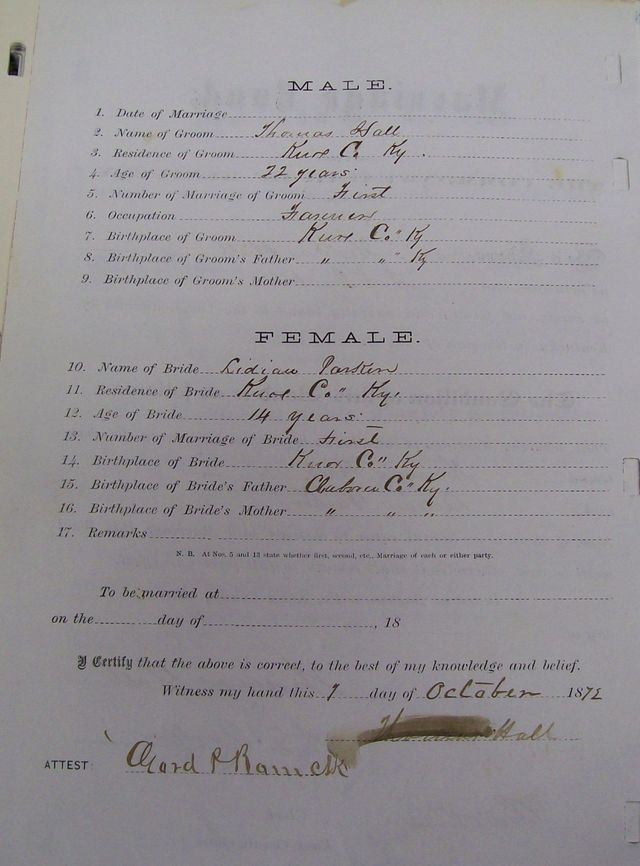 MALE.
1. Date of Marriage
2. Name of Groom Thomas Hall
3. Residence of Groom Knox Co Ky.
4. Age of Groom 22 years.
5. Number of Marriage of Groom First
6. Occupation Farmer
7. Birthplace of Groom Knox Co" Ky
8. Birthplace of Groom's Father " "" Ky
9. Birthplace of Groom's Mother
FEMALE.
10. Name of Bride
11. Residence of Bride Knox Co" Ky.
12. Age of Bride 14 years.
13. Number of Marriage of Bride First
14. Birthplace of Bride Knox Co" Ky
15. Birthplace of Bride's Father Co" Ky.
16. Birthplace of Bride's Mother " " "
17. Remarks
N. B. At Nos. 5 and 13 state whether first, second, etc., Marriage of each or either party.
To be married at
on the day of , 18
I Certify that the above is correct, to the best of my knowledge and belief.
Witness my hand this 7 day of October 1872
Hall
ATTEST: